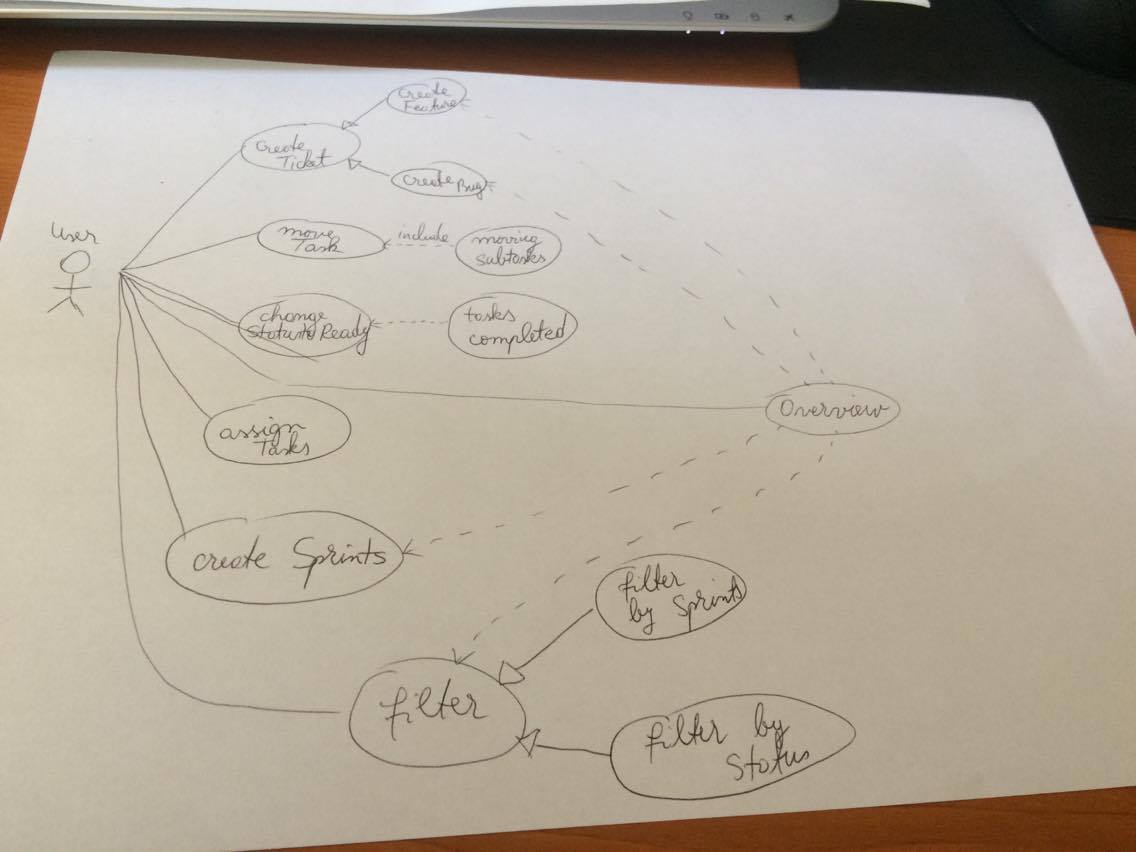 Create
Feature
Create
Ticket
create Bug
User
move
Task
include
moving
subtasks
change
Status to Ready
tasks
completed
Overview
assign
Tasks
create Sprints
filter
by Sprints
filter
filter by
Status